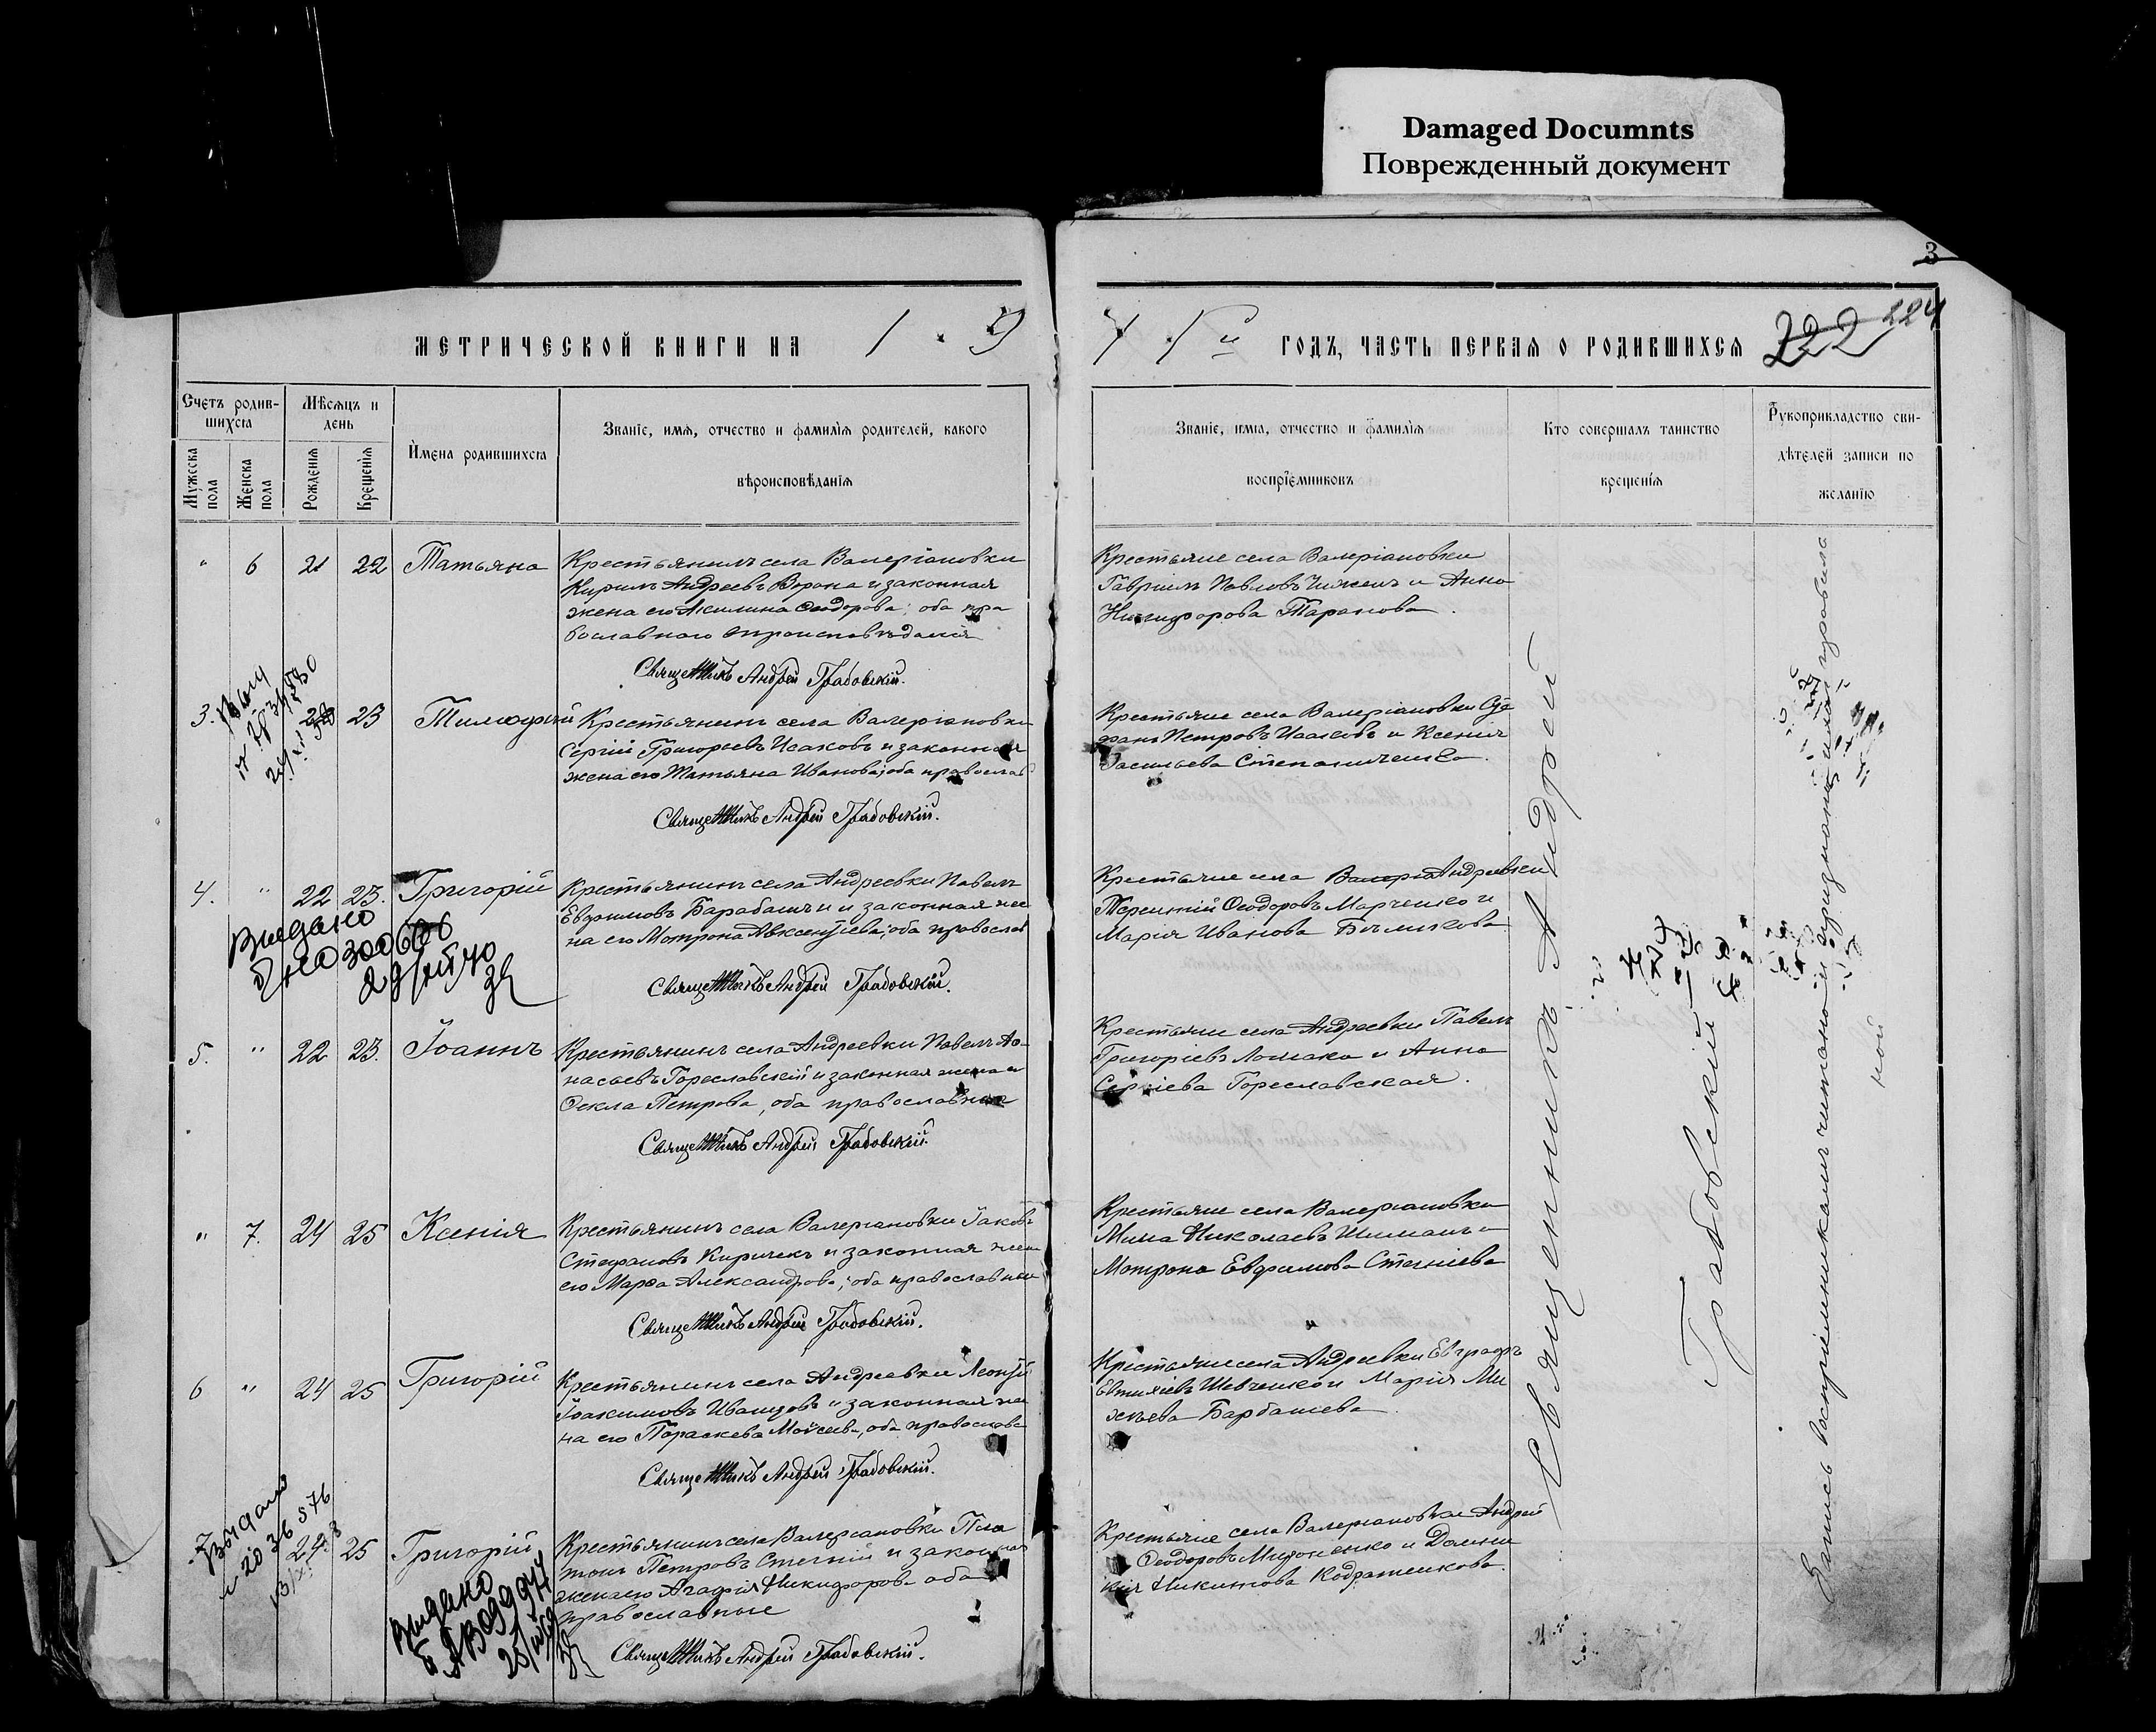 Damaged Documnts
Поврежденный документ
3
МЕТРИЧЕСКОЙ КНИГИ НА 1 9
1 1 й ГОДЪ, ЧАСТЬ ПЕРВАЯ О РОДИВШИХСЯ
222 224
Счетъ родив-
шихся
Мѣсяцъ и
день
Мужеска пола
Женска пола
Рожденія
Крещенія
Имена родившихся
Званіе, имя, отчество и фамилія родителей, какого
вѣроисповѣданія
Званіе, имя, отчество и фамилія
воспріемниковъ
Кто совершалъ таинство
крещенія
Рукоприкладство сви-
дѣтелей записи по
желанію
" 6 21 22 Татьяна
Крестьянинъ села Валеріановки
Кирилъ Андреевъ Ворона и законная
жена его Акилина Ѳеодорова; оба пра
вославнаго вѣроисповѣданія
Священникъ Андрей Грабовскій.
Крестьяне села Валеріановки
Гавріилъ Павловъ и Анна
Никифорова Таранова.
3. 23 Тимофей
Крестьянинъ села Валеріановки
Сергій Григорьевъ Исаковъ и законная
жена его Татьяна Иванова; оба православ
Священникъ Андрей Грабовскій.
Крестьяне села Валеріановки Сте
фанъ Петровъ Исаковъ и Ксенія
Васильева Степаниченко.
4. " 22 23. Григорій
Выдано
Крестьянинъ села Андреевки Павелъ
Евфимовъ Барабашъ и законная же
на его Мотрона Авксентіева; оба православ
Священникъ Андрей Грабовскій.
Крестьяне села Андреевки
Терентій Ѳеодоровъ Марченко и
Марія Иванова Бѣликова
5. " 22 23. Іоаннъ
Крестьянинъ села Андреевки Павелъ Аѳ-
насьевъ Гореславскій и законная жена его
Ѳекла Петрова, оба православные
Священникъ Андрей Грабовскій.
Крестьяне села Андреевки Павелъ
Григоріевъ Ломака и Анна
Сергіева Гореславская.
" 7. 24 25 Ксенія
Крестьянинъ села Валеріановки Іаковъ
Стефановъ Киричекъ и законная жена
его Марѳа Александрова; оба православные
Священникъ Андрей Грабовскій.
Крестьяне села Валеріановки
Мина Николаевъ и
Мотрона Евфимова Стегніева
6 " 24 25 Григорій
Крестьянинъ села Андреевки Леонтій
Іоакимовъ Иванцовъ и законная же
на его Параскева Моисеева, оба православн
Священникъ Андрей Грабовскій.
Крестьяне села Андреевки Евграфъ
Евтихіевъ Шевченко и Марія Ми
хѣева Барбашева.
7 24 25 Григорій
Выдано
Выдано
Крестьянинъ села Валеріановки Пла
тонъ Петровъ Стегній и законная
жена его Агафія Никифорова оба
православные
Священникъ Андрей Грабовскій.
Крестьяне села Валеріановки Андрей
Ѳеодоровъ Миroненко и Домни
кія Никитова Кодратенкова.
Священникъ Андрей
Грабовскій
Запись воспріемникамъ читана и признана ими правиль
ной